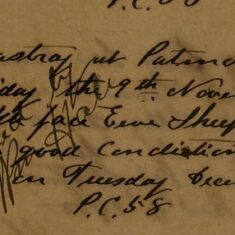 P.C. 58
astray at Patna
day the 9th Nove
face Ewe Sheep
good Condition
on Tuesday Dece
P.C. 58